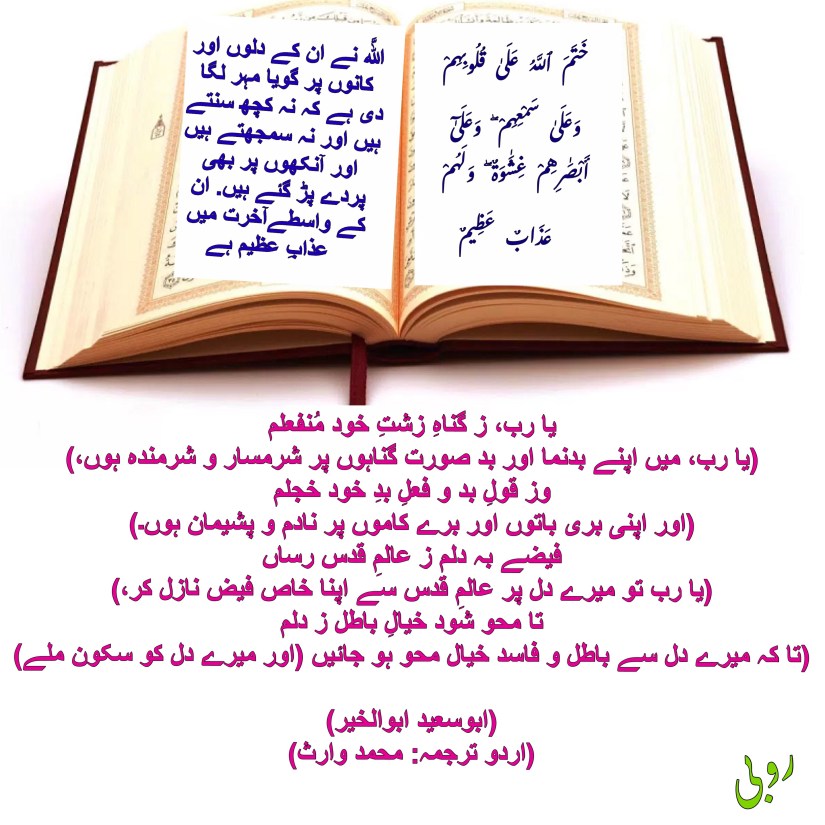 خَتَمَ ٱللَّهُ عَلَىٰ قُلُوبِهِمْ
وَعَلَىٰ سَمْعِهِمْ ۖ وَعَلَىٰٓ
أَبْصَٰرِهِمْ غِشَٰوَةٌ ۖ وَلَهُمْ
عَذَابٌ عَظِيمٌ
اللّٰہ نے ان کے دلوں اور
کانوں پر گویا مہر لگا
دی ہے کہ نہ کچھ سنتے
ہیں اور نہ سمجھتے ہیں
اور آنکھوں پر بھی
پردے پڑ گئے ہیں. ان
کے واسطے آخرت میں
عذابِ عظیم ہے
یا رب، ز گناہِ زشتِ خود مُنفعلم
(یا رب، میں اپنے بدنما اور بد صورت گناہوں پر شرمسار و شرمندہ ہوں،)
وز قولِ بد و فعلِ بدِ خود خجلم
(اور اپنی بری باتوں اور برے کاموں پر نادم و پشیمان ہوں۔)
فیضے بہ دلم ز عالمِ قدس رساں
(یا رب تو میرے دل پر عالمِ قدس سے اپنا خاص فیض نازل کر،)
تا محو شود خیالِ باطل ز دلم
(تا کہ میرے دل سے باطل و فاسد خیال محو ہو جائیں (اور میرے دل کو سکون ملے)
(ابوسعید ابوالخیر)
(اردو ترجمہ: محمد وارث)
روبی